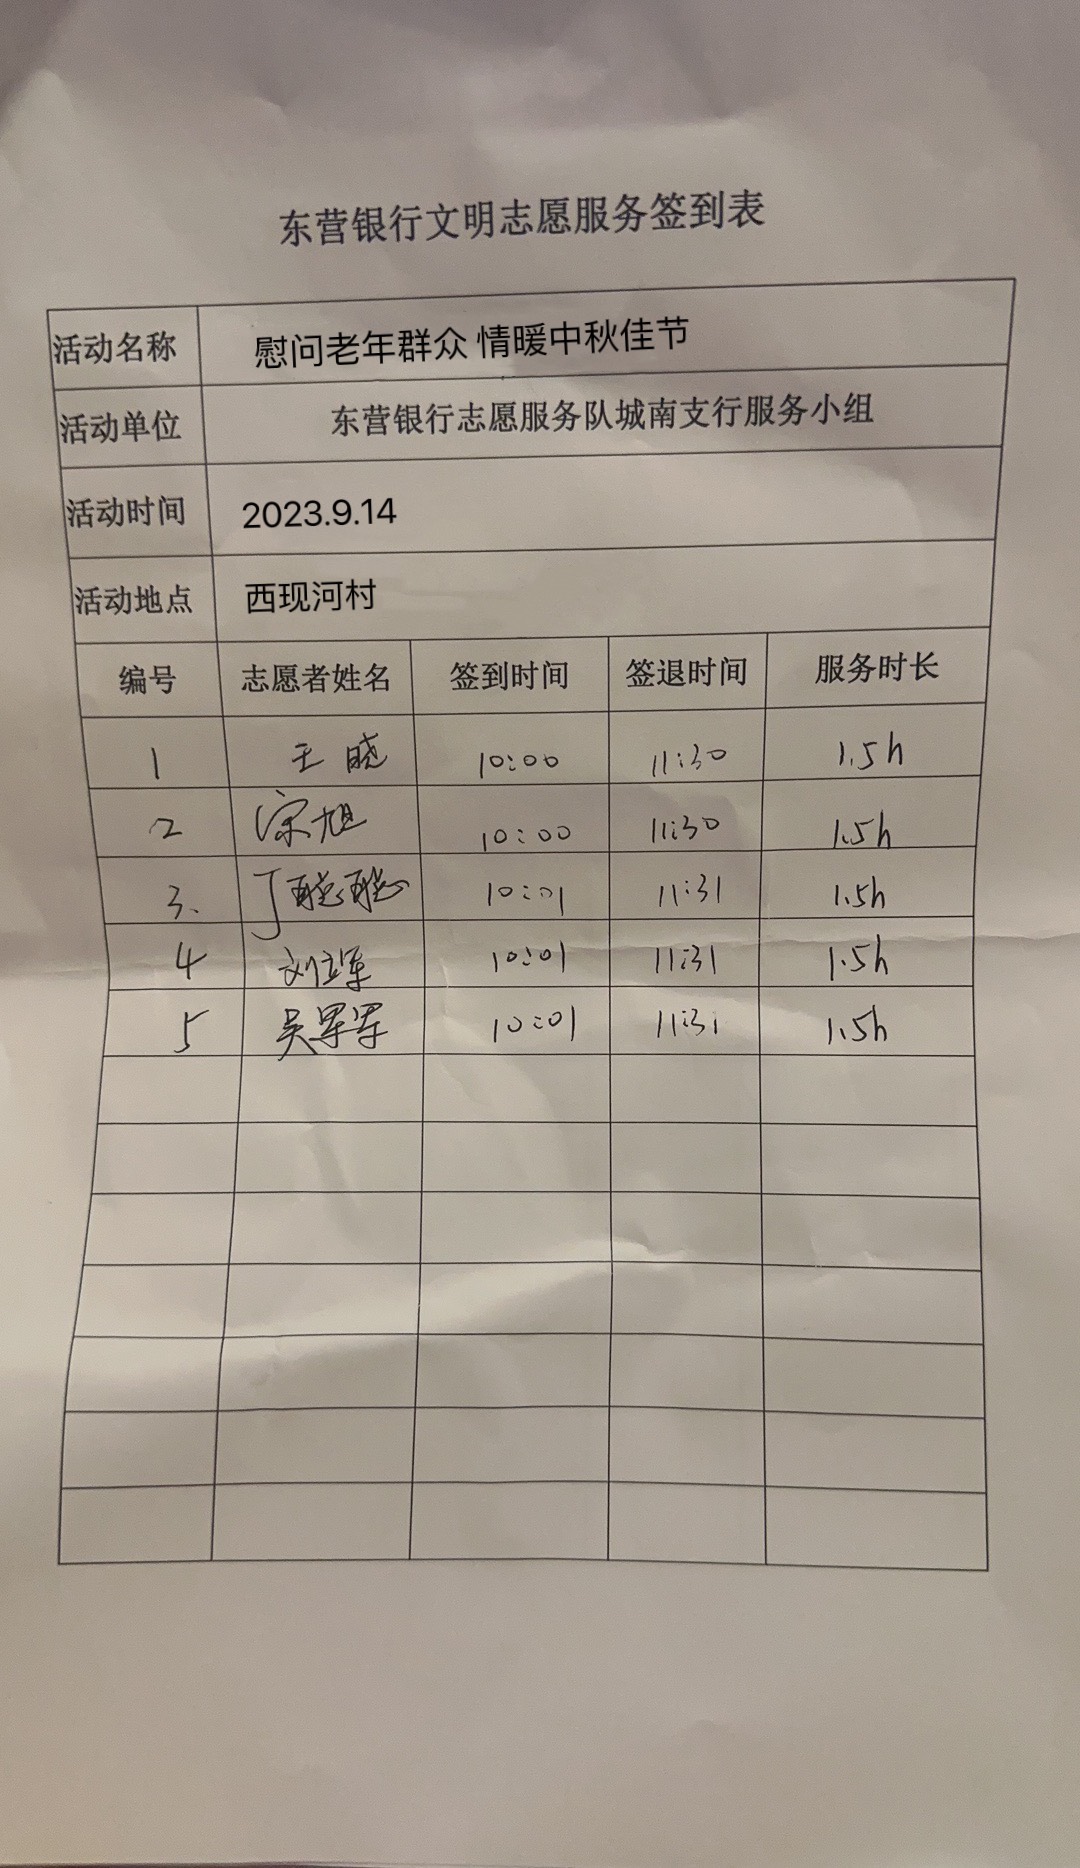 东营银行文明志愿服务签到表
活动名称 慰问老年群众 情暖中秋佳节
活动单位 东营银行志愿服务队城南支行服务小组
活动时间 2023.9.14
活动地点 西现河村
编号 志愿者姓名 签到时间 签退时间 服务时长
1 王晓 10:00 11:30 1.5h
2 宋旭 10:00 11:30 1.5h
3. 丁聪聪 10:01 11:31 1.5h
4 刘立军 10:01 11:31 1.5h
5 吴军军 10:01 11:31 1.5h